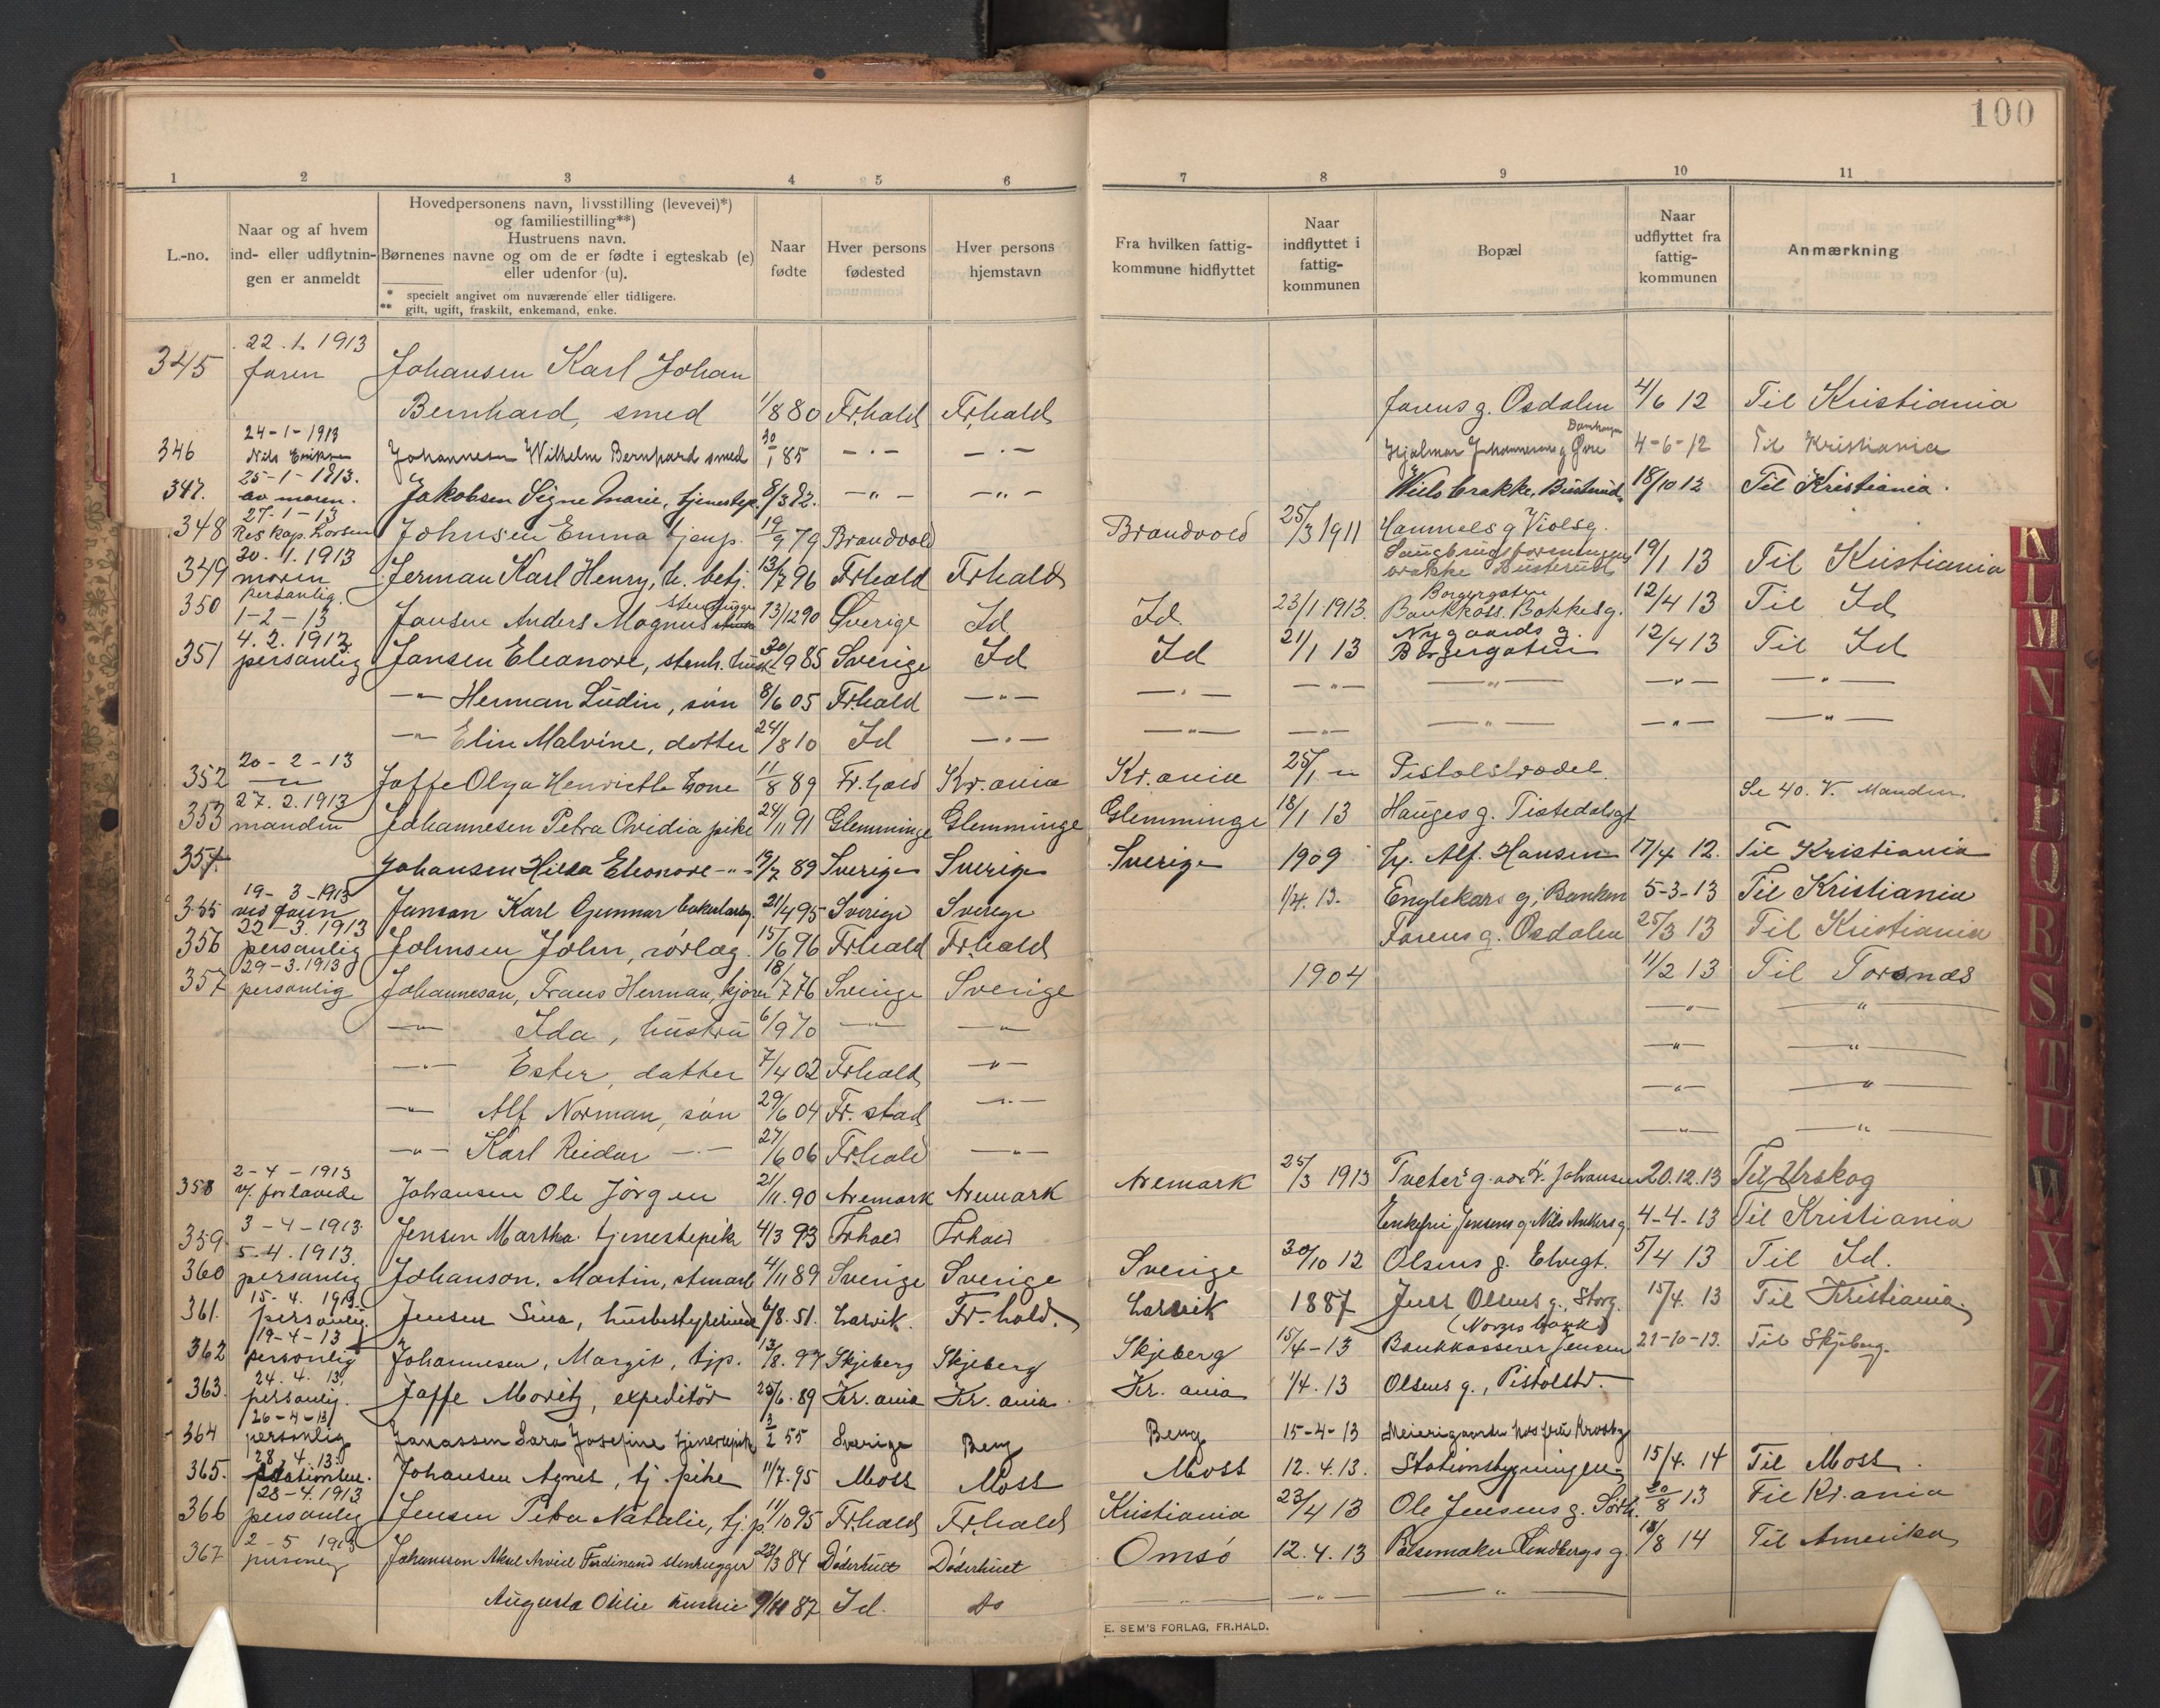 100
1 2 3 4 5 6 7 8 9 10 11
L.-no.
Naar og af hvem ind- eller udflytningen er anmeldt
Hovedpersonens navn, livsstilling (levevei)*) og familiestilling**) Hustruens navn. Børnenes navne og om de er födte i egteskab (e) eller udenfor (u).
* specielt angivet om nuværende eller tidligere.
** gift, ugift, fraskilt, enkemand, enke.
Naar fødte
Hver persons fødested
Hver persons hjemstavn
Fra hvilken fattigkommune hidflyttet
Naar indflyttet i fattigkommunen
Bopæl
Naar udflyttet fra fattigkommunen
Anmærkning
345 22.1.1913 faren Johansen Karl Johan
Bernhard, smed 1/8 80 Fr.hald Fr.hald Jarens g. Osdalen 4/6 12 Til Kristiania
346 24-1-1913 Nils Eriksen Johannesen Wilhelm Bernhard smed 30/1 85 -"- -"- Hjalmar Johannesens g Øvre 4-6-12 Til Kristiania
347. 25-1-1913. av moren. Jakobsen Signe Marie, tjenestep. 8/3 82. -"- -"- Niels brakke, Busterud 18/10 12 Til Kristiania.
348 27-1-13 Res kap. Larsen Johnsen Emma tjenp. 19/9 79 Brandvold Brandvold 25/3 1911 Hammels g Violsg.
349 30.1.1913 moren Jerman Karl Henry, h. betj. 13/7 96 Fr.hald Fr.hald brakke Busterud 19/1 13 Til Kristiania
350 personlig. 1-2-13 Jansen Anders Magnus stenhugger 13/12 90 Sverige Id Id 23/1 1913. Borgergaten Bankkass. Bakkes g. 12/4 13 Til Id
351 4.2.1913 personlig Jansen Eleanore, stenh. hust. 30/9 85 Sverige Id Id 21/1 13 Nygaards g. Borgergaten 12/4 13 Til Id
-"- Herman Ludin, søn 8/6 05 Fr.hald -"- -"- -"- -"- -"- -"-
-"- Elin Malvine, datter 24/8 10 Id -"- -"- -"- -"- -"- -"-
352 20-2-13 -"- Jaffe Olga Henriette kone 11/8 89 Fr.hald Kr.ania Kr.ania 25/1 -"- Pistolstrædet. Se 40. V. Manden.
353 27.2.1913 manden Johannesen Petra Ovidia pike 24/11 91 Glemminge Glemminge Glemminge 18/1 13 Hauges g. Tistedalsgt
354 Johansen Hilda Eleonore -"- 19/7 89 Sverige Sverige Sverige 1909 Alf. Hansen 17/4 12. Til Kristiania
355 19-3-1913 Janson Karl Gunnar 21/4 95 Sverige Sverige 1/4. 13. Englekars g, Banken 5-3-13 Til Kristiania
356 22-3.1913 personlig Johnsen John, rørlæg. 15/6 96 Fr.hald Fr.hald Farens g. Osdalen 25/3 13 Til Kristiania
357 29-3.1913 personlig Johanneson, Frans Herman, kjører 18/1 76 Sverige Sverige 1904 11/2 13 Til Torsnæs
-"- Ida, hustru 6/9 70 -"- -"- -"- -"-
-"- Ester, datter 7/4 02 Fr.hald -"- -"- -"-
-"- Alf Norman, søn 29/6 04 Fr. stad -"- -"- -"-
-"- Karl Reidar -"- 27/6 06 Fr.hald -"- -"- -"-
358 2-4-1913 v/ forlovede Johansen Ole Jörgen 21/11. 90 Aremark Aremark Aremark 25/3 1913 Tveter's g. Johansen 20.12.13 Til Urskog
359 3-4-1913 Jensen Martha tjenestepike 4/3 93 Frhald Frhald Enkefru Jensens g Nils Ankers g. 4-4-13 Til Kristiania
360 5-4.1913. personlig Johanson. Martin, stenarb 4/11 89 Sverige Sverige Sverige 30/10 12 Olsens g. Elvegt. 5/4 13 Til Id.
361. 15-4. 1913. personlig. Jensen Sina, husbestyrerinde 6/8. 51. Larvik. Fr-hald. Larvik 1887 Jens Olsens g., Storg. 15/4. 13 Til Kristiania.
362 19-4-13 personlig Johannesen, Margit, tjp. 13/8. 97 Skjeberg Skjeberg Skjeberg 15/4-13 (Norges bank) Bankkasserer Jensen 21-10-13. Til Skjeberg.
363. 24. 4. 13. personlig. Jaffe Moritz, expeditör 25/6. 89 Kr. ania Kr. ania Kr. ania 1/4. 13 Olsens g., Pistolstr.
364 26-4-13 personlig Janassen Sara Josefine tjenestepike 3/2 55 Sverige Berg Berg 15-4-13 Meierigaarden hos fru Krosby
365. 28.4.13. Johansen Agnes, tj. pike 11/7. 95 Moss Moss Moss 12.4.13. Stationsbygningen 15/4. 14 Til Moss.
366 28-4.1913 personlig Jensen Petra Natalie, tj.p. 11/10 95 Fr.hald Fr.hald Kristiania 23/4 13 Ole Jensens g. 20/8 13 Til Kr.ania
367 2-5 1913 personlig Johansson Aksel Arvid Ferdinand stenhugger 22/3 84 Döderhult Döderhult Omsø 12.4.13 Pølsemaker Lindbergs g. 18/8 14 Til Amerika
Augusta Otilie hustru 9/11 87 Id. do -"- -"- -"-
E. SEM'S FORLAG, FR.HALD.
K
L
M
N
P
Q
R
S
T
U
W
X
Y
Z
Æ
Ø